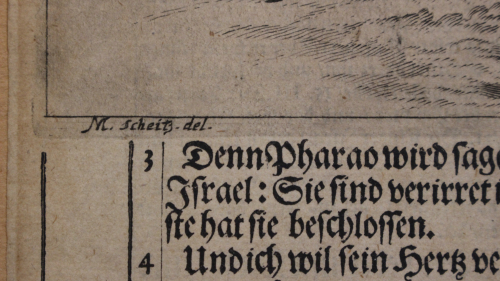 M. Scheitz. del.
3 Denn Pharao wird sage
Jſrael: Sie ſind verirret
ſte hat ſie beſchloſſen.
4 Und ich wil ſein Hertz ve